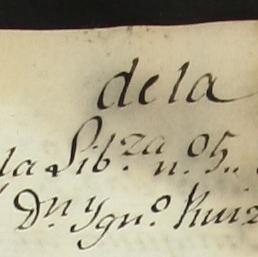 dela
la Lib.za n.º 95..
Dn. Ygn.º Ruiz